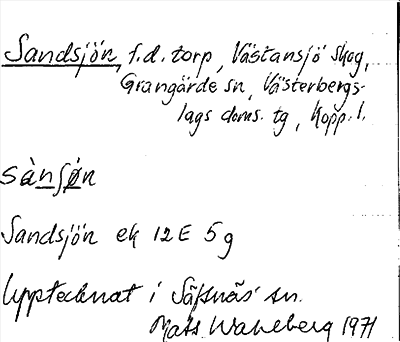 Sandsjön, f.d. torp, Västansjö skog,
Grangärde sn, Västerbergs-
lags doms. tg, Kopp. l.
sànʃǿn
Sandsjön ek 12E 5g
Upptecknat i Säfsnäs sn.
Mats Wahlberg 1971